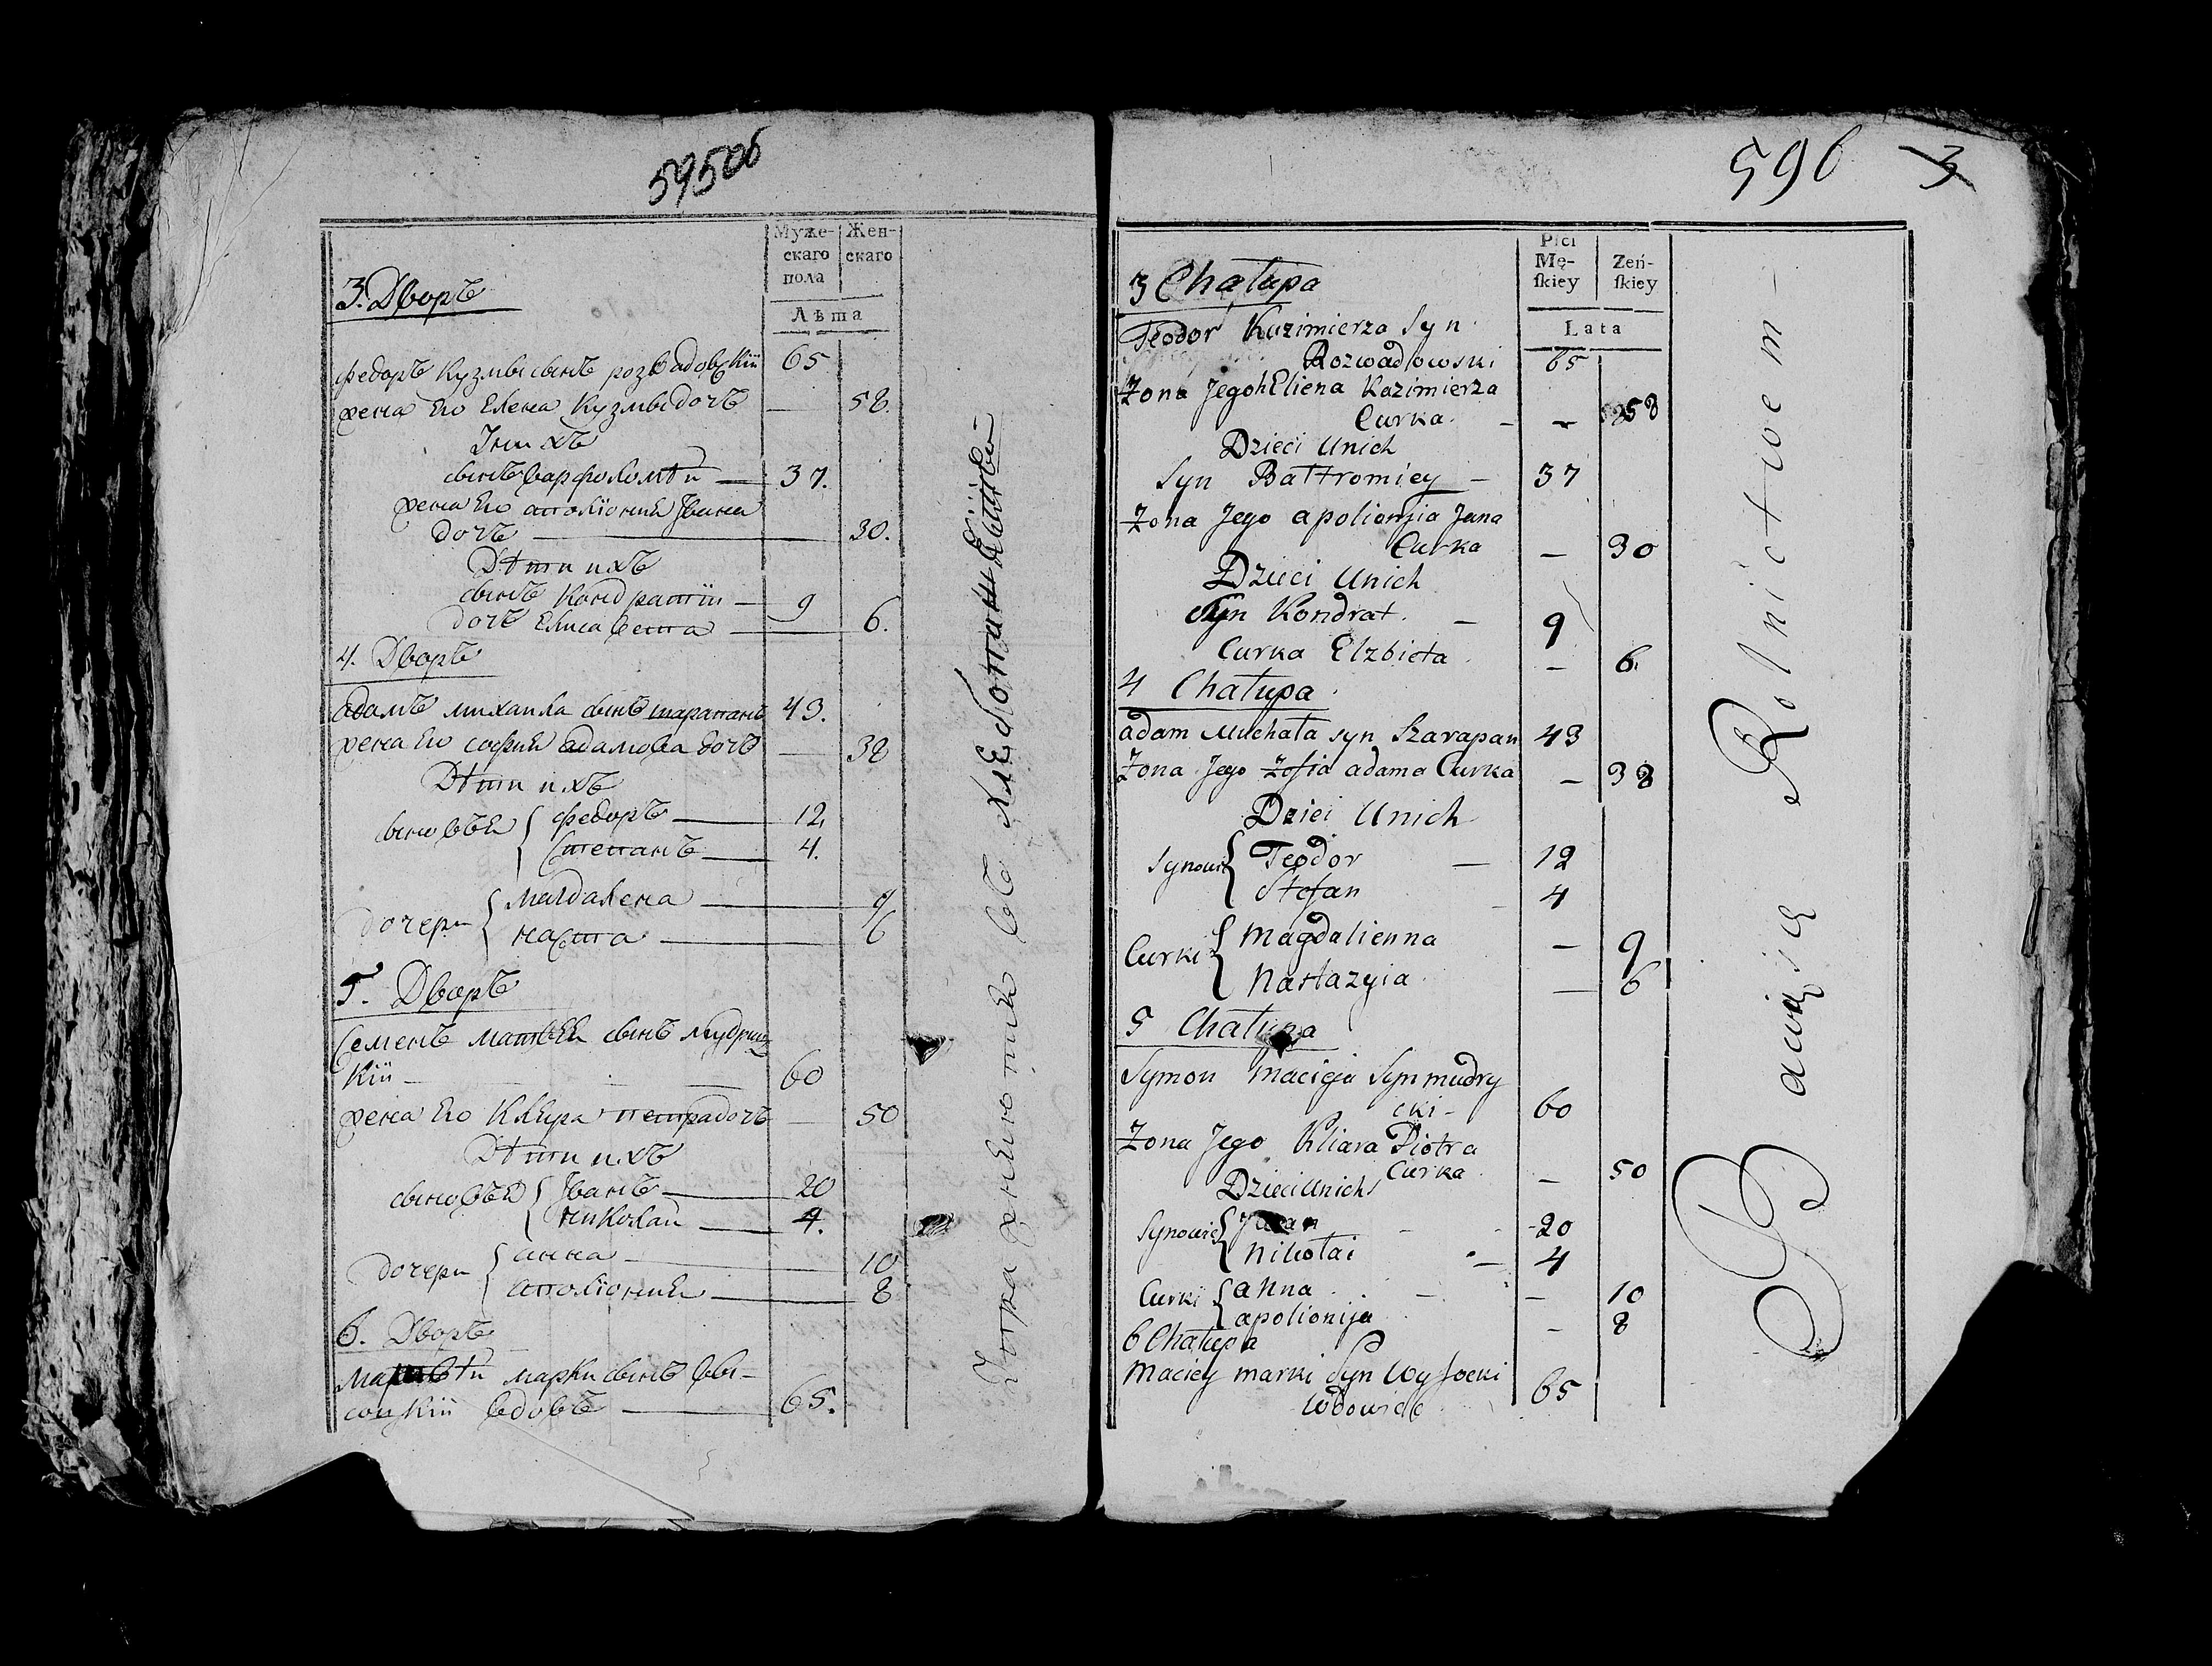 595об
Муже-
скаго
пола
Жен-
скаго
Лѣта
3. Дворъ
федоръ Кузмы сынъ розвадовскій 65
жена Его Елена Кузмы дочъ — 58.
У нихъ
сынъ варфоломѣй — 37.
жена Его аполіония Ивана
дочъ — 30.
Дѣти ихъ
сынъ Кондратій — 9
дочъ Елисавета — 6.
4. Дворъ
адамъ михаила сынъ шарапанъ 43.
жена Его софия адамова дочъ — 38
Дѣти ихъ
сыновъя { федоръ — 12.
Степанъ — 4.
дочери { магдалена — 9
наста — 6
5. Дворъ
Семенъ матвѣя сынъ мудриц-
кій — 60
жена Его Кляра петра дочъ — 50
Дѣти ихъ
сыновъя { Иванъ — 20
николай — 4.
дочери { анна — 10
аполіония — 8
6. Дворъ
марки сынъ вы-
соцкій вдовъ — 65.
упражняютця въ
596
3
Płci
Mę-
skiey
Żeń-
skiey
Lata
3 Chałupa
Teodor Kazimierza Syn
Rozwadłowski 65
Żona Jego hEliena Kazimierza
Curka. — 58
Dzieci Unich
Syn Bałtromiey — 37
Żona Jego apolionjia Jana
Curka — 30
Dzieci Unich
Syn Kondrat. — 9
Curka Elzbieta. — 6.
4 Chałupa
adam Michała syn Szarapan 43
Żona Jego Zofia adama Curka — 38
Dziei Unich
Synowie { Teodor — 12
Stefan — 4
Curki { Magdalienna — 9
Nastazyia — 6
5 Chałupa
Symon Macieja Syn mudry
cki — 60
Żona Jego Kliara Piotra
Curka — 50
Dzieci Unich
Synowie { Jwan — 20
Nikołai — 4
Curki { anna — 10
apolionija — 8
6 Chałupa
Maciey marki Syn Wysocki 65
Wdowiec
Bawią się Rolnictwem —